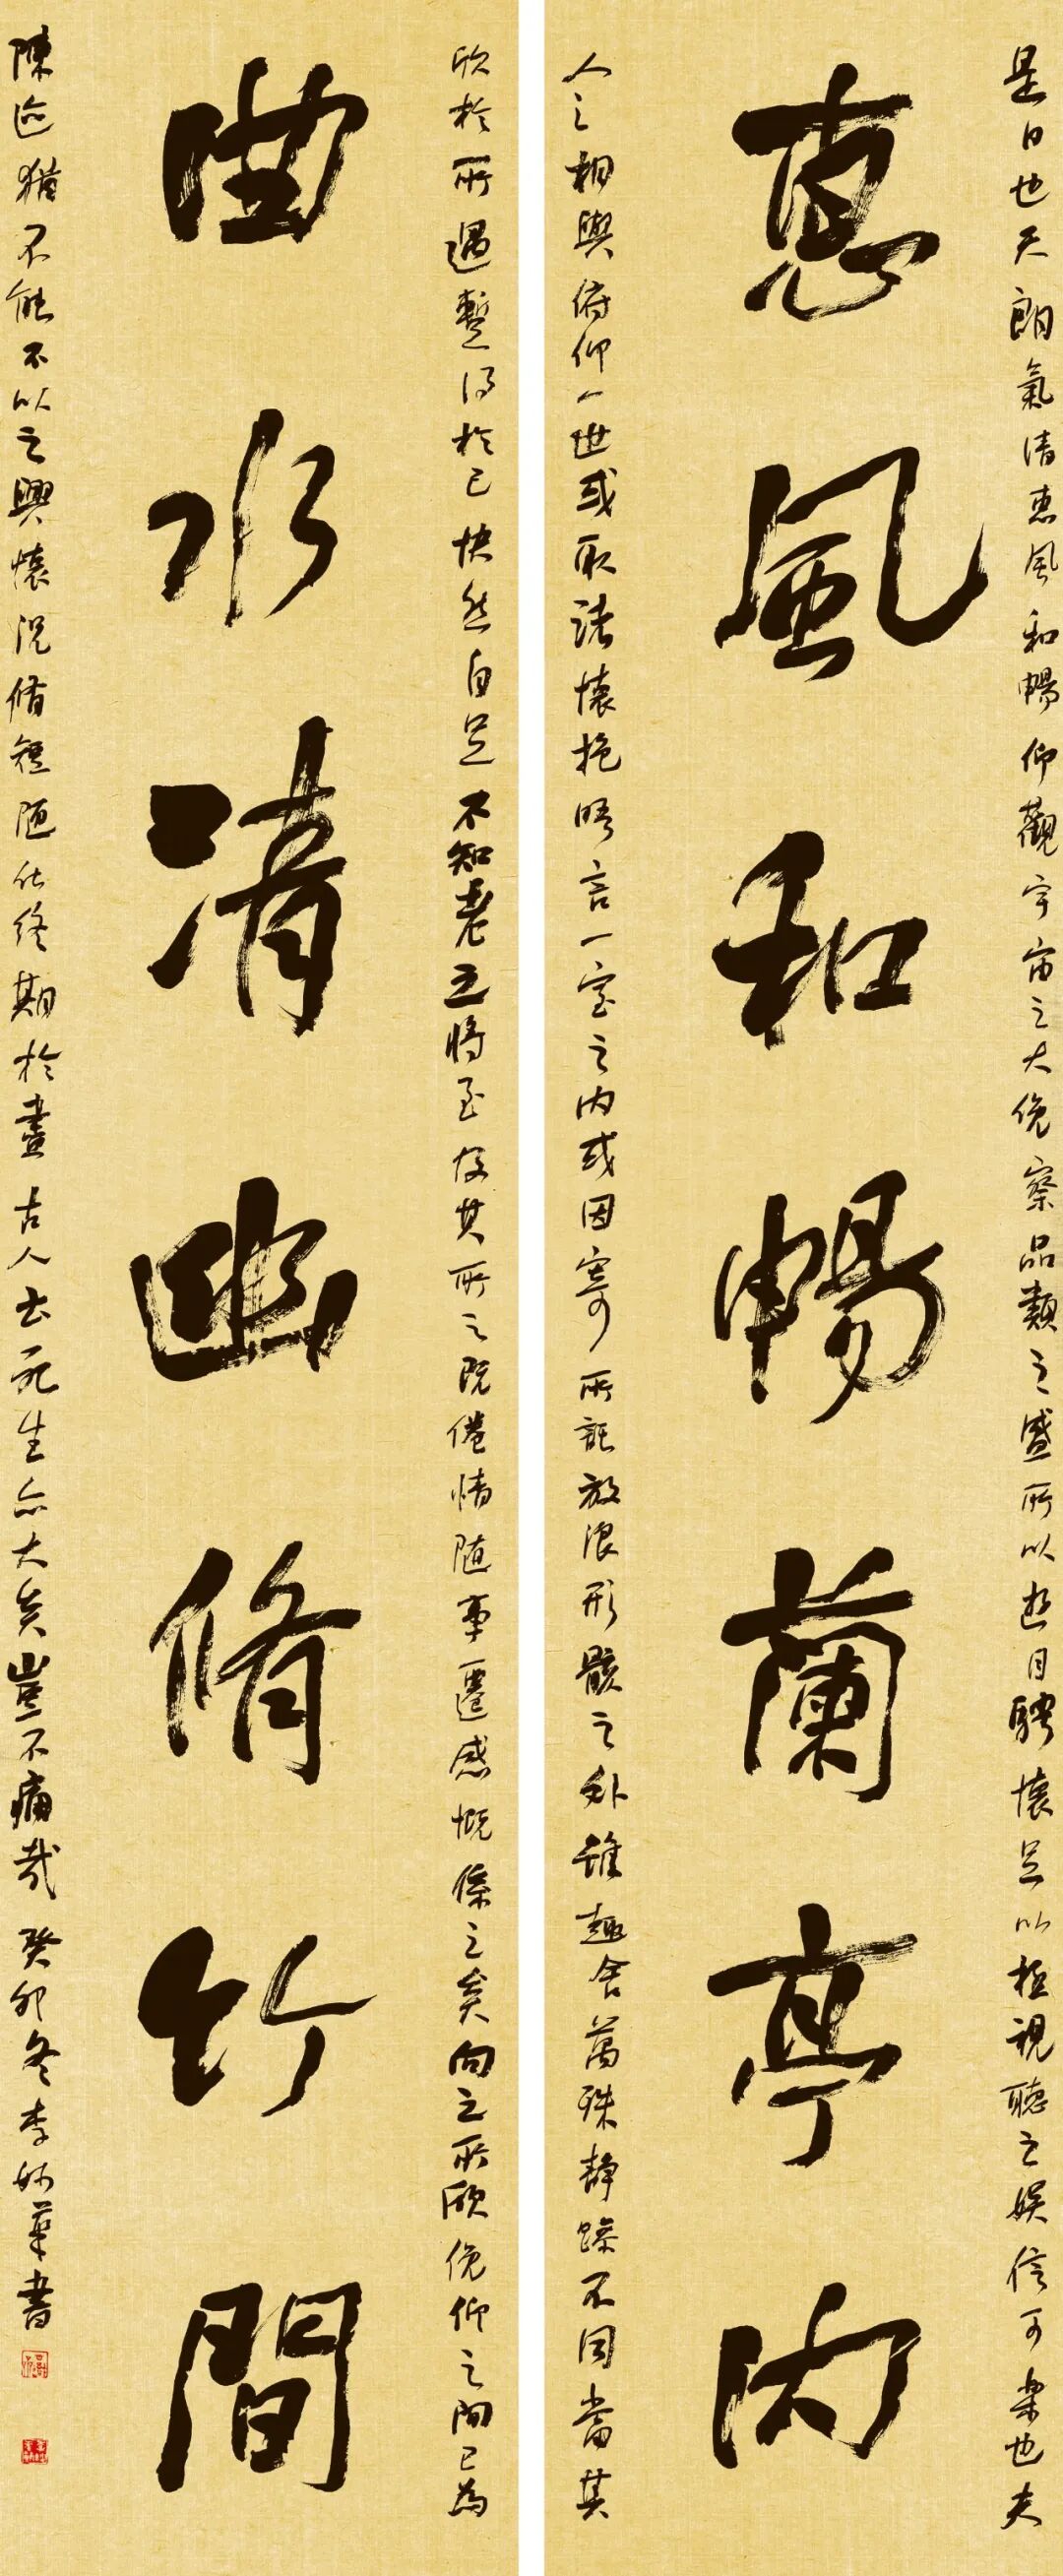 是日也天朗氣清惠風和暢仰觀宇宙之大俛察品類之盛所以遊目騁懷足以極視聽之娱信可樂也夫
惠風和暢蘭亭內
人之相與俯仰一世或取諸懷抱晤言一室之內或因寄所託放浪形骸之外雖趣舍萬殊靜躁不同當其
欣於所遇暫得於己快然自足不知老之將至及其所之既倦情隨事遷感慨係之矣向之所欣俛仰之間已為
曲水清幽脩竹間
陳迹猶不能不以之興懷況脩短隨化終期於盡古人云死生亦大矣豈不痛哉癸卯冬李妙華書